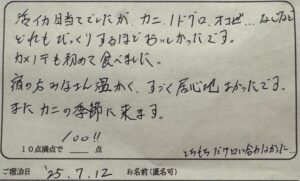 活イカ目当てでしたが、カニ、ノドグロ、オコゼ…などなど
どれもびっくりするほどおいしかったです。
カメノテも初めて食べました。
宿の方みなさん温かく、すごく居心地よかったです。
またカニの季節に来ます。
100!!
10点満点で 点
ご宿泊日 '25.7.12 お名前(匿名可)